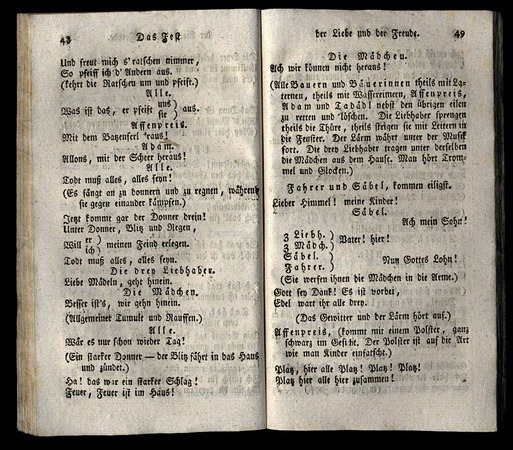 48 Das Fest
Und freut mich s'ratschen nimmer,
So pfeiff ich d' Andern aus.
(kehrt die Ratschen um und pfeift.)
Alle.
Was ist das, er pfeift uns) sie) aus.
Affenpreis.
Mit dem Batzenferl 'raus!
Adam.
Allons, mit der Scheer heraus!
Alle.
Todt muß alles, alles seyn!
(Es fängt an zu donnern und zu regnen, während
sie gegen einander kämpfen.)
Jetzt kommt gar der Donner drein!
Unter Donner, Blitz und Regen,
Will er) ich) meinen Feind erlegen.
Todt muß alles, alles seyn.
Die drey Liebhaber.
Liebe Mädeln, geht hinein.
Die Mädchen.
Besser ist's, wie gehn hinein.
(Allgemeiner Tumult und Rauffen.)
Alle.
Wär es nur schon wieder Tag!
(Ein starker Donner — der Blitz fährt in das Haus
und zündet.)
Ha! das war ein starker Schlag!
Feuer, Feuer ist im Haus!
der Liebe und der Freude. 49
Die Mädchen.
Ach wir können nicht heraus!
(Alle Bauern und Bäuerinnen theils mit La-
ternen, theils mit Wassereimern, Affenpreis,
Adam und Tadädl nebst den übrigen eilen
zu retten und löschen. Die Liebhaber sprengen
theils die Thüre, theils steigen sie mit Leitern in
die Fenster. Der Lärm währt unter der Musik
fort. Die drey Liebhaber tragen unter derselben
die Mädchen aus dem Hause. Man hört Trom-
mel und Glocken.)
Fahrer und Säbel, kommen eiligst.
Lieber Himmel! meine Kinder!
Säbel.
Ach mein Sohn!
3 Liebh. )
3 Mädch. ) Vater! hier!
Säbel. )
Fahrer. ) Nun Gottes Lohn!
(Sie werfen ihnen die Mädchen in die Arme.)
Gott sey Dank! Es ist vorbei,
Edel wart ihr alle drey.
(Das Gewitter und der Lärm hört auf.)
Affenpreis, (kommt mit einem Polster, ganz
schwarz im Gesicht. Der Polster ist auf die Art
wie man Kinder einfatscht.)
Platz, hier alle Platz! Platz! Platz!
Platz hier alle hier zusammen!